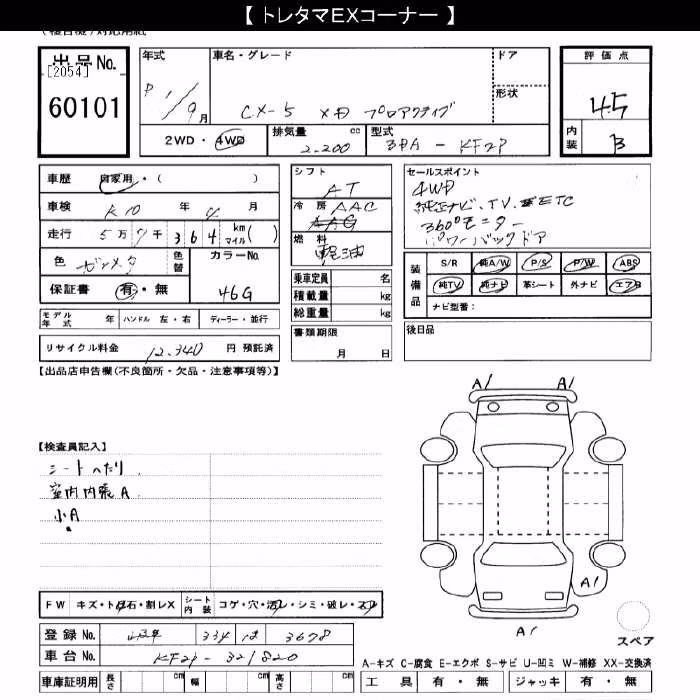 【 トレタマEXコーナー 】
出品No.
[2054]
60101
年式
R 1/9月
車名・グレード
CX-5 XD プロアクティブ
ドア
形状
評価点
4.5
内装
B
2WD・4WD
排気量 cc
2.200
型式
3DA - KF2P
車歴 自家用・( )
車検 R10 年 月
走行 5万 7千 364 km マイル( )
色 ガンメタ
色替
カラーNo.
46G
保証書 有・無
モデル年式 年 ハンドル 左・右 ディーラー・並行
リサイクル料金 12.340 円 預託済
シフト
AT
冷房 AAC
AAC
燃料
軽油
乗車定員 名
積載量 kg
総重量 kg
書類期限
月 日
セールスポイント
4WD
純正ナビ、TV、ETC
360°モニター
パワーバックドア
装備品
S/R 純A/W P/S P/W ABS
純TV 純ナビ 革シート 外ナビ エアB
ナビ型番:
後日品
【出品店申告欄(不良箇所・欠品・注意事項等)】
【検査員記入】
シートへたり
室内内張A
小A
A1 A1
A1
A1
スペア
FW キズ・ト石・割レX
シート内装 コゲ・穴・汚レ・シミ・破レ・スレ
登録No. 334 3678
車台No. KF2P-321820
車庫証明用 長さ cm 幅 cm 高さ cm
A-キズ C-腐食 E-エクボ S-サビ U-凹ミ W-補修 XX-交換済
工具 有・無 ジャッキ 有・無